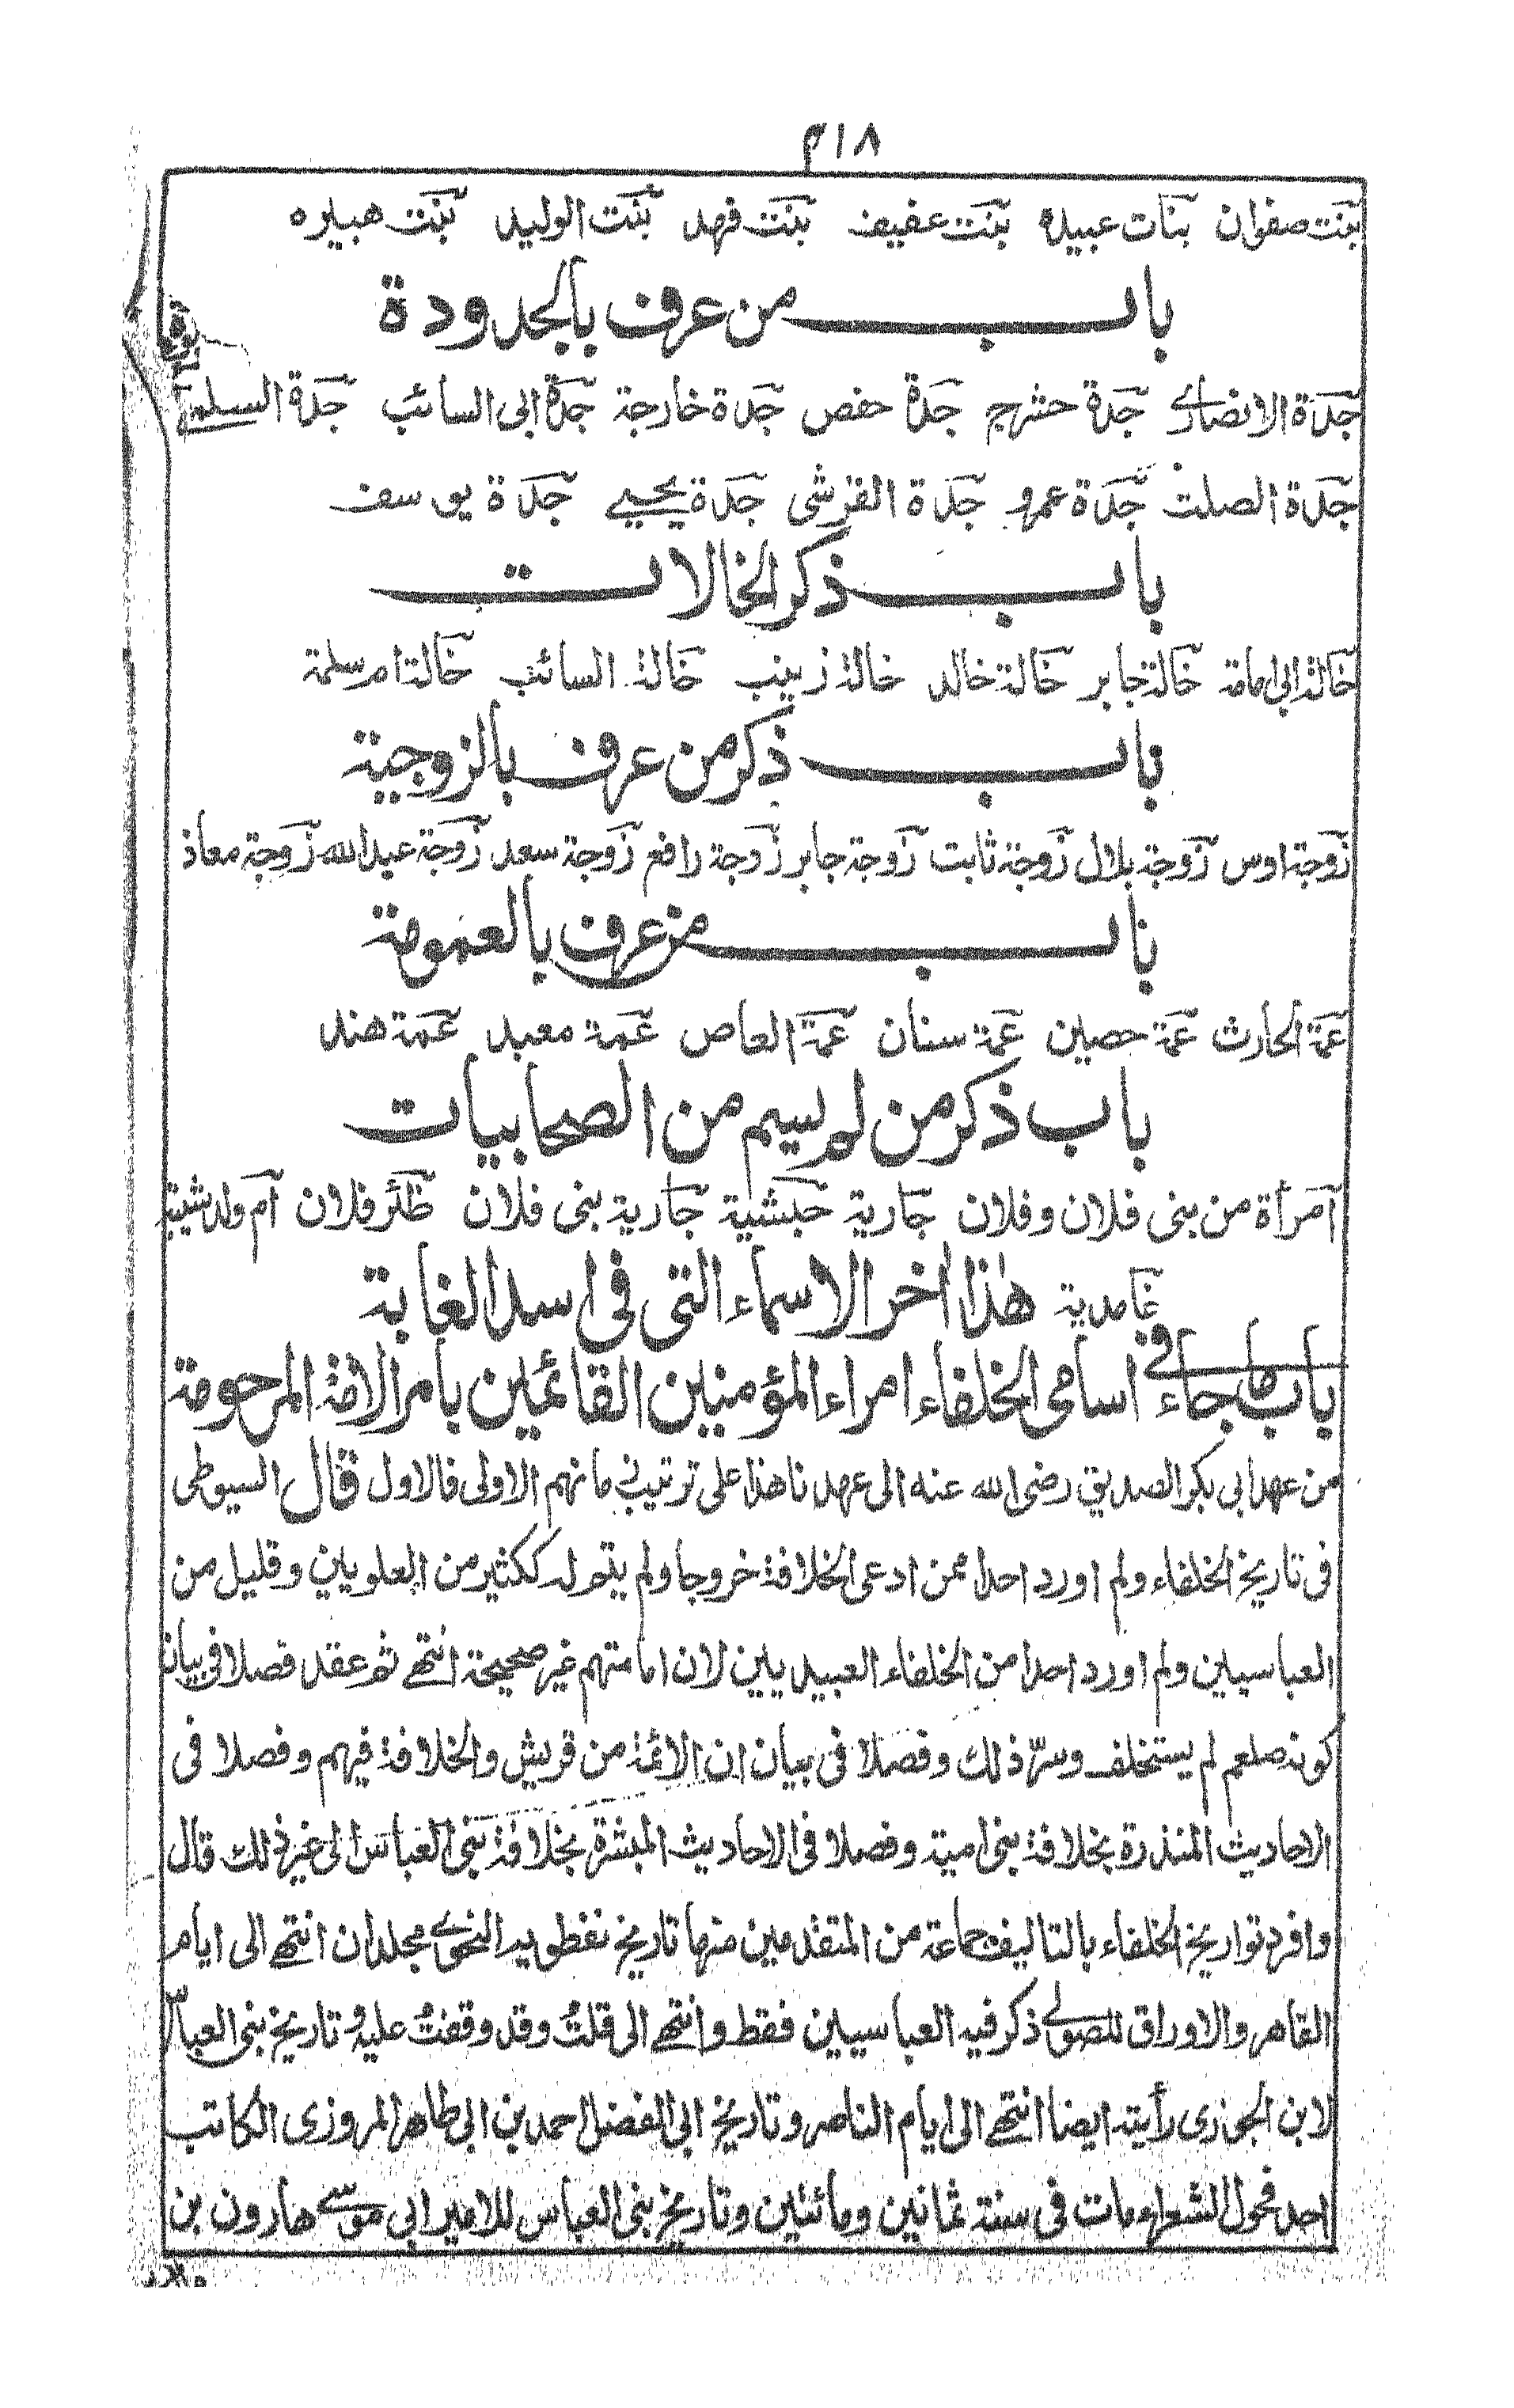 ٢١٨
بنت صفوان بنات عبيدة بنت عفيف بنت فهد بنت الوليد بنت هبيره
باب من عرف بالجدودة
جدة الانصاری جدة حشرج جدة حفص جدة خارجة جدة ابی السائب جدة السلمی
جدة الصلت جدة عمرو جدة القرشی جدة یحیی جدة یوسف
باب ذكر الخالات
خالة ابی امامة خالة جابر خالة خالد خالة زینب خالة السائب خالة ام سلمة
باب ذكر من عرف بالزوجیة
زوجة اوس زوجة بلال زوجة ثابت زوجة جابر زوجة رافع زوجة سعد زوجة عبدالله زوجة معاذ
باب من عرف بالعمومة
عمة الحارث عمة حصین عمة سنان عمة العاص عمة معبد عمة هند
باب ذكر من لم یسم من الصحابیات
امرأة من بنی فلان وفلان جاریة حبشیة جاریة بنی فلان ظئر فلان ام ولد شیبة
غامدیة هذا اخر الاسماء التی فی اسد الغابة
باب ما جاء فی اسامی الخلفاء امراء المؤمنین القائمین بامر الامة المرحومة
من عهد ابی بكر الصدیق رضی الله عنه الی عهدنا هذا علی ترتیب مانهم الاولی فالاول قال السیوطی
فی تاریخ الخلفاء ولم اورد احدا ممن ادعی الخلافة خروجا ولم یتم له ككثیر من العلویین وقلیل من
العباسیین ولم اورد احدا من الخلفاء العبیدیین لان امامتهم غیر صحیحة انتهی ثم عقد فصلا فی بیان
كونه صلعم لم یستخلف وسرّ ذلك وفصلا فی بیان ان الائمة من قریش والخلافة فیهم وفصلا فی
الاحادیث المنذرة بخلافة بنی امیة وفصلا فی الاحادیث المبشرة بخلافة بنی العباس الی غیر ذلك قال
وافرد تواریخ الخلفاء بالتالیف جماعة من المتقدمین منها تاریخ نفطویه النحوی مجلدان انتهی الی ایام
القاهر والاوراق للصولی ذكر فیه العباسیین فقط وانتهی الی قلت وقد وقفت علیه وتاریخ بنی العباس
لابن الجوزی رأیته ایضا انتهی الی ایام الناصر وتاریخ ابی الفضل احمد بن ابی طاهر المروزی الكاتب
احد فحول الشعراء مات فی سنة ثمانین ومائتین وتاریخ بنی العباس للامیر ابی موسی هارون بن